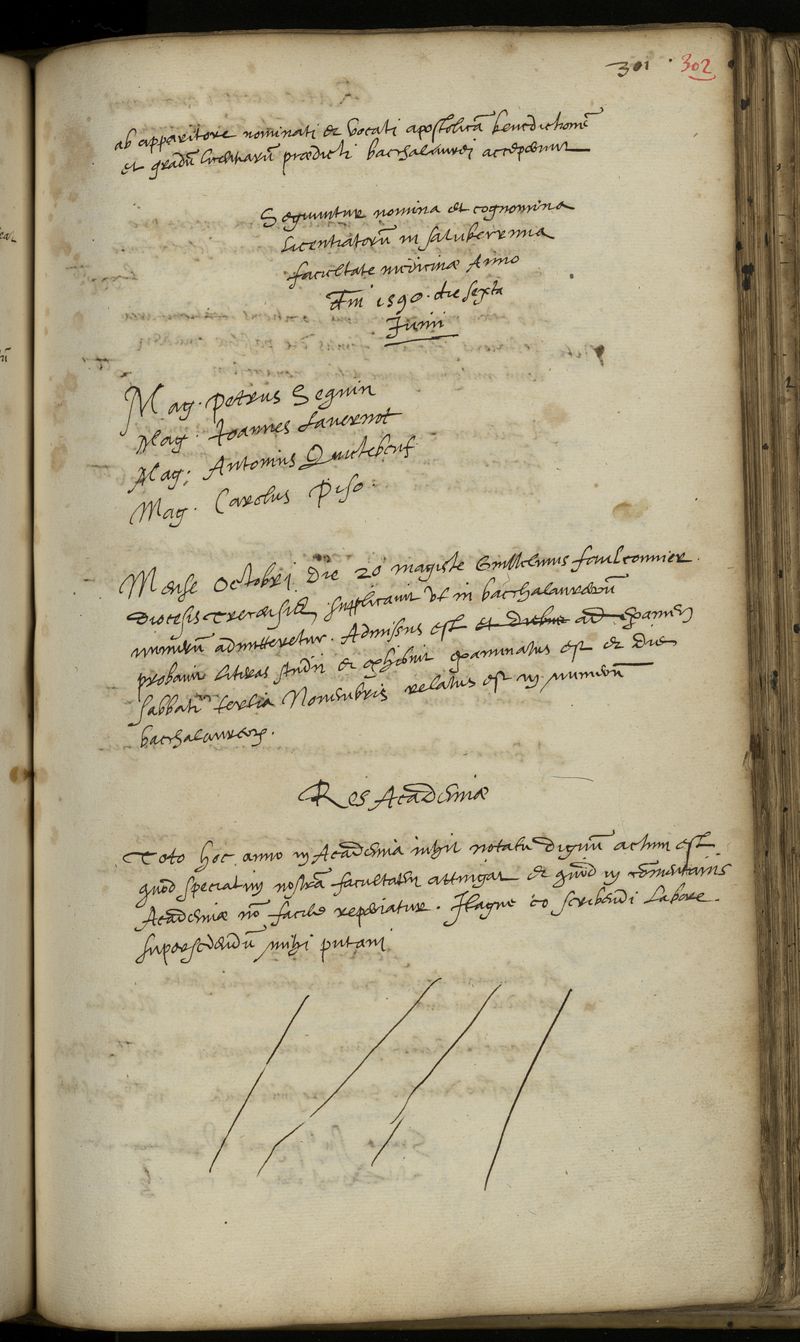 301 302
ab apparitore nominati et vocati apostolicā benedictionē
et gradū licētiarū praedicti bacchalaurei acceperunt
Sequuntur nomina et cognomina
Licentiatorū in saluberrima
facultate medicinæ Anno
dm̄i 1590. die sexta
Junii
Mag. Petrus Seguin
Mag. Joannes Lavernot
Mag. Antonius Quicteboeuf
Mag. Carolus Piso.
Mense Octobri die 20 magister Guillelmus faulconnier
Diocesis Trecēsis supplicavit ut in bacchalaureorū
numerū admitteretur. Admissus est et diebus ad examen
probavit literas studii et exhibuit examinatus est et die
sabbati tertia Novembris relatus est in numerū
bacchalaureorū.
Res Academiæ
Toto hoc anno in Academia nihil notatu dignū actum est
quod speciatim nostrā facultatem attingat et quod in cōmentariis
Academiæ nō facile reperiatur. Itaque eo scribendi labore
supersedendū mihi putavi